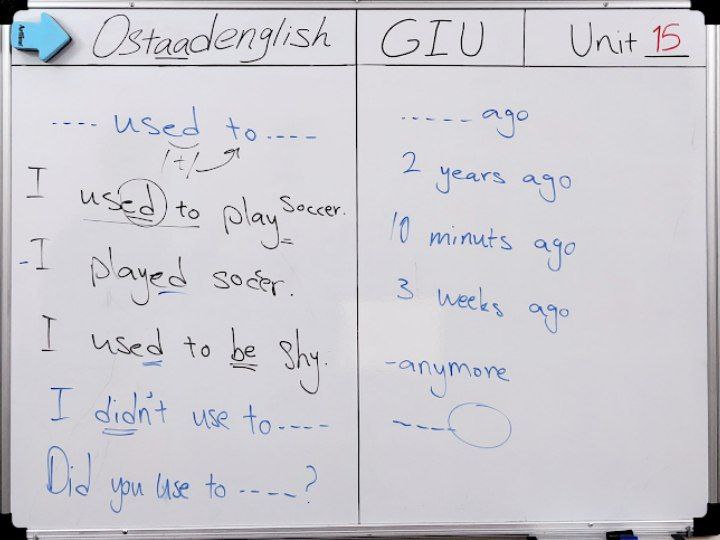 Ostaadenglish
GIU
Unit 15
---- used to ----
/t/
I used to play soccer.
-I played soccer.
I used to be shy.
I didn't use to ----
Did you use to ----?
----- ago
2 years ago
10 minuts ago
3 weeks ago
-anymore
----